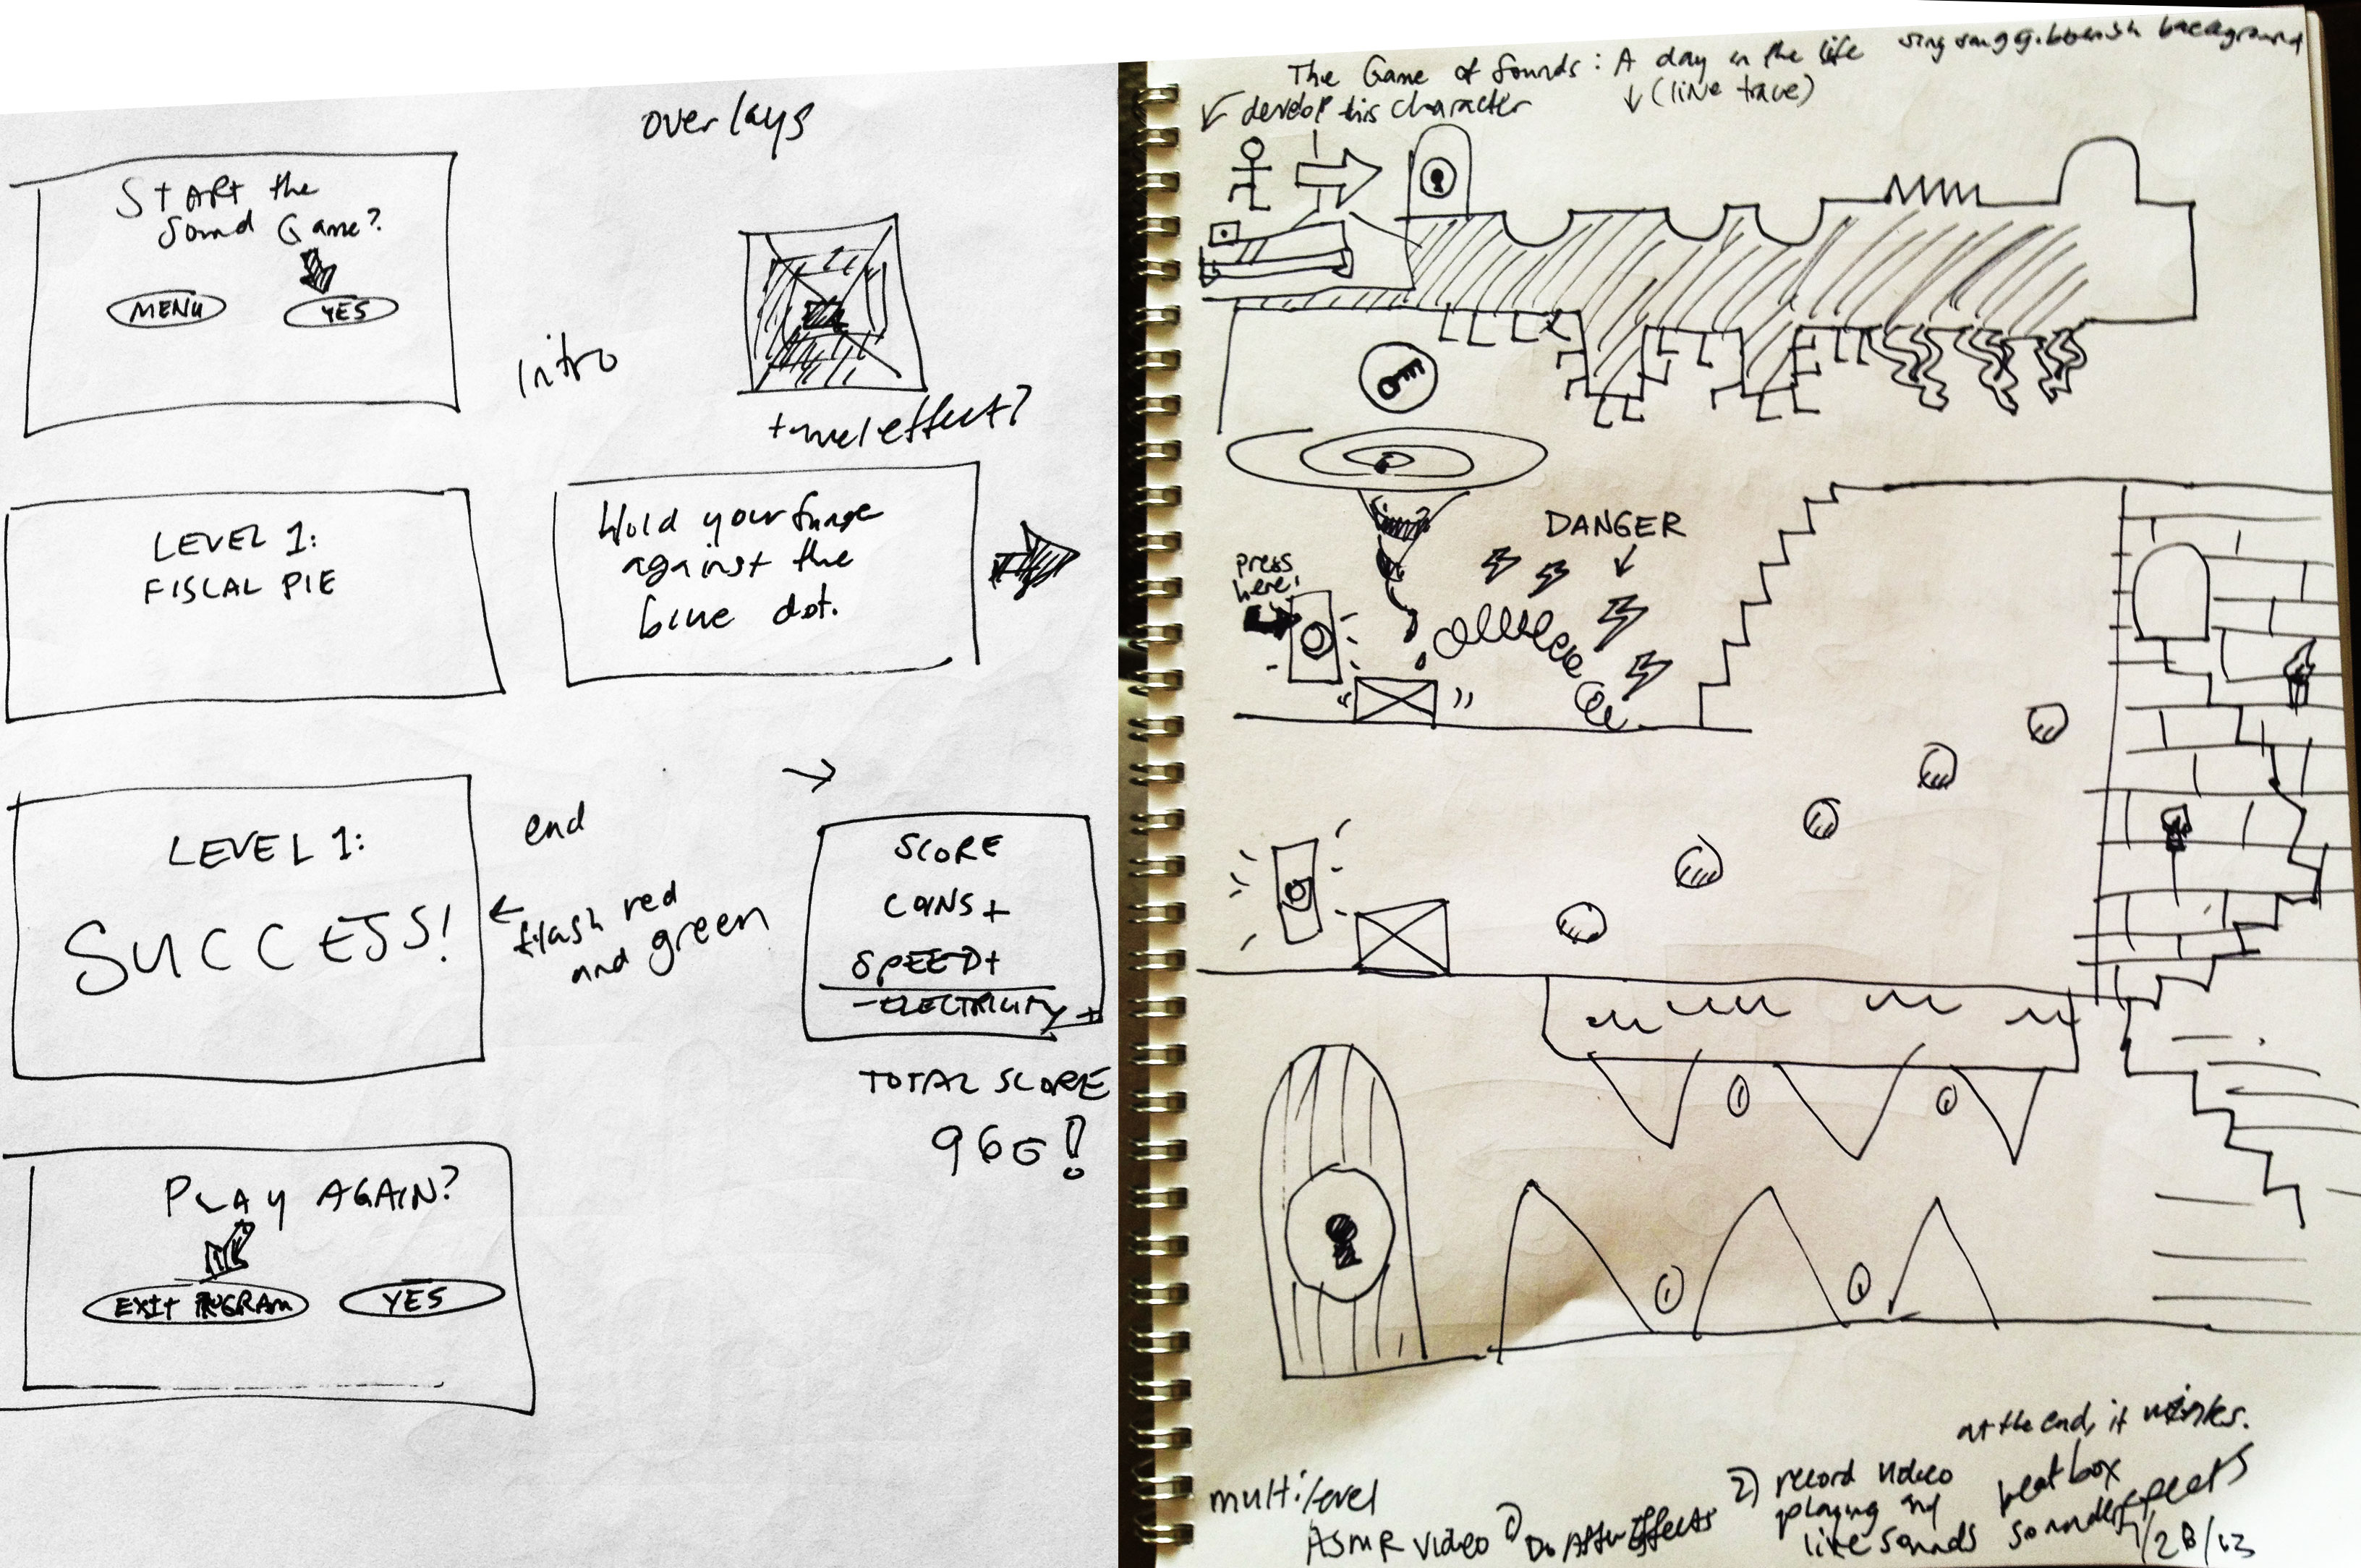 overlays
START the
Sound Game?
MENU
YES
intro
tunnel effect?
LEVEL 1:
FISCAL PIE
Hold your finger
against the
blue dot.
LEVEL 1:
SUCCESS!
end
flash red
and green
SCORE
COINS+
SPEED+
-ELECTRICITY+
TOTAL SCORE
960!
PLAY AGAIN?
EXIT PROGRAM
YES
The Game of Sounds: A day in the life sing song gibberish background
develop this character
(line trace)
DANGER
press
here!
at the end, it winks.
multilevel
ASMR video
1) Do After Effects
2) record video
playing and
live sounds
beatbox
sound effects